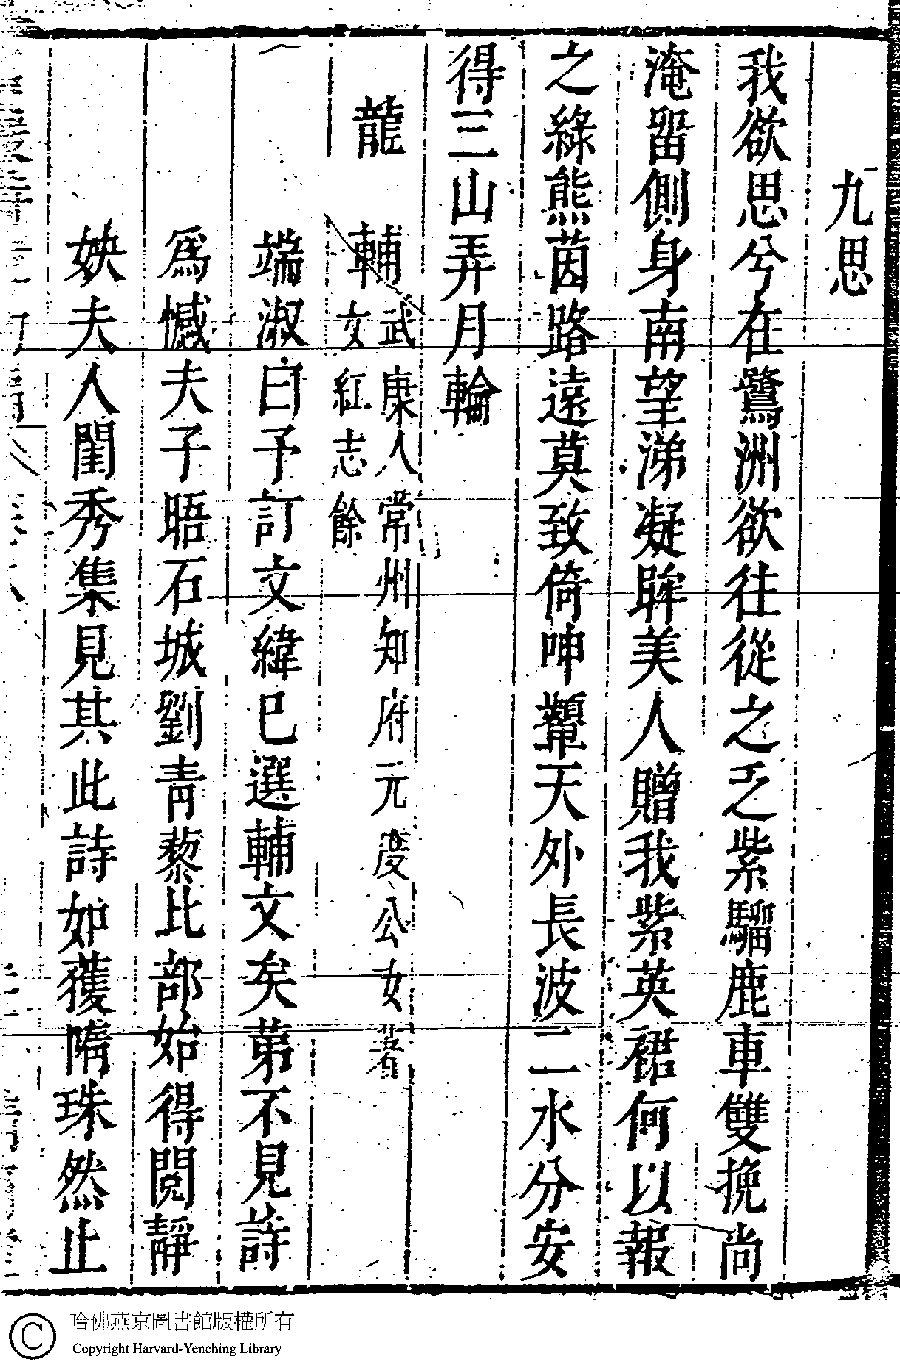 九思
我欲思兮在鷺洲欲往從之乏紫騮鹿車雙挽尚
淹畱側身南望涕凝眸美人贈我紫英裙何以報
之綠熊茵路遠莫致倚呻顰天外長波二水分安
得三山弄月輪
龍輔武康人常州知府元度公女著
女紅志餘
端淑曰予訂文緯已選輔文矣苐不見詩
爲憾夫子晤石城劉青藜比部始得閱靜
姎夫人閨秀集見其此詩如獲隋珠然止
哈佛燕京圖書館版權所有
Copyright Harvard-Yenching Library